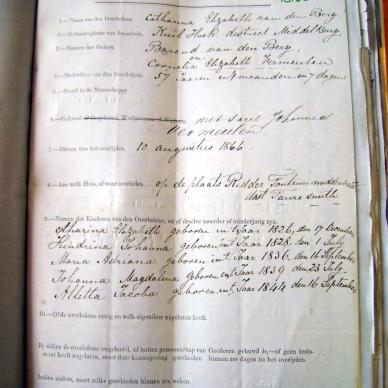 1.—Naam van den Overledene. Catharina Elizabeth van den Berg
2.—Geboorteplaats van denzelven. Kuil Hoek district Middelburg
3.—Namen der Ouders. Barend van den Berg,
en
Cornelia Elizabeth Vermeulen
4.—Ouderdom van den Overledene. 57 Jaaren maanden en 7 dagen
5.—Stand in de Maatschappy.
6.—Gehuwd met Johannes
Vermeulen
7.—Datum van het overlijden. 10 augustus 1866
8.—Aan welk Huis, of waar overleden. op de plaats Fontein
dist Faure smith
9.—Namen der Kinderen van den Overledene, en of dezelve meerder of minderjarig zyn.
Catharina Elizabeth geboren int Jaar 1826, den 17 December
Hendrina Johanna geboren int Jaar 1828. den 1 July
Maria Adriana geboren int Jaar 1836, den 16 September
Johanna Magdalena geboren int Jaar 1839 den 23 July
Alletta Jacoba geboren int Jaar 1844 den 16 September
10.—Of de overledene eenig en welk eigendom nagelaten heeft.
By aldien de overledene ongehuwd, of buiten gemeenschap van Goederen gehuwd is,—of geen testa-
ment heeft nagelaten, moet deze kennisgeving geschieden binnen zes dagen na het overlyden.
binnen zes weken.